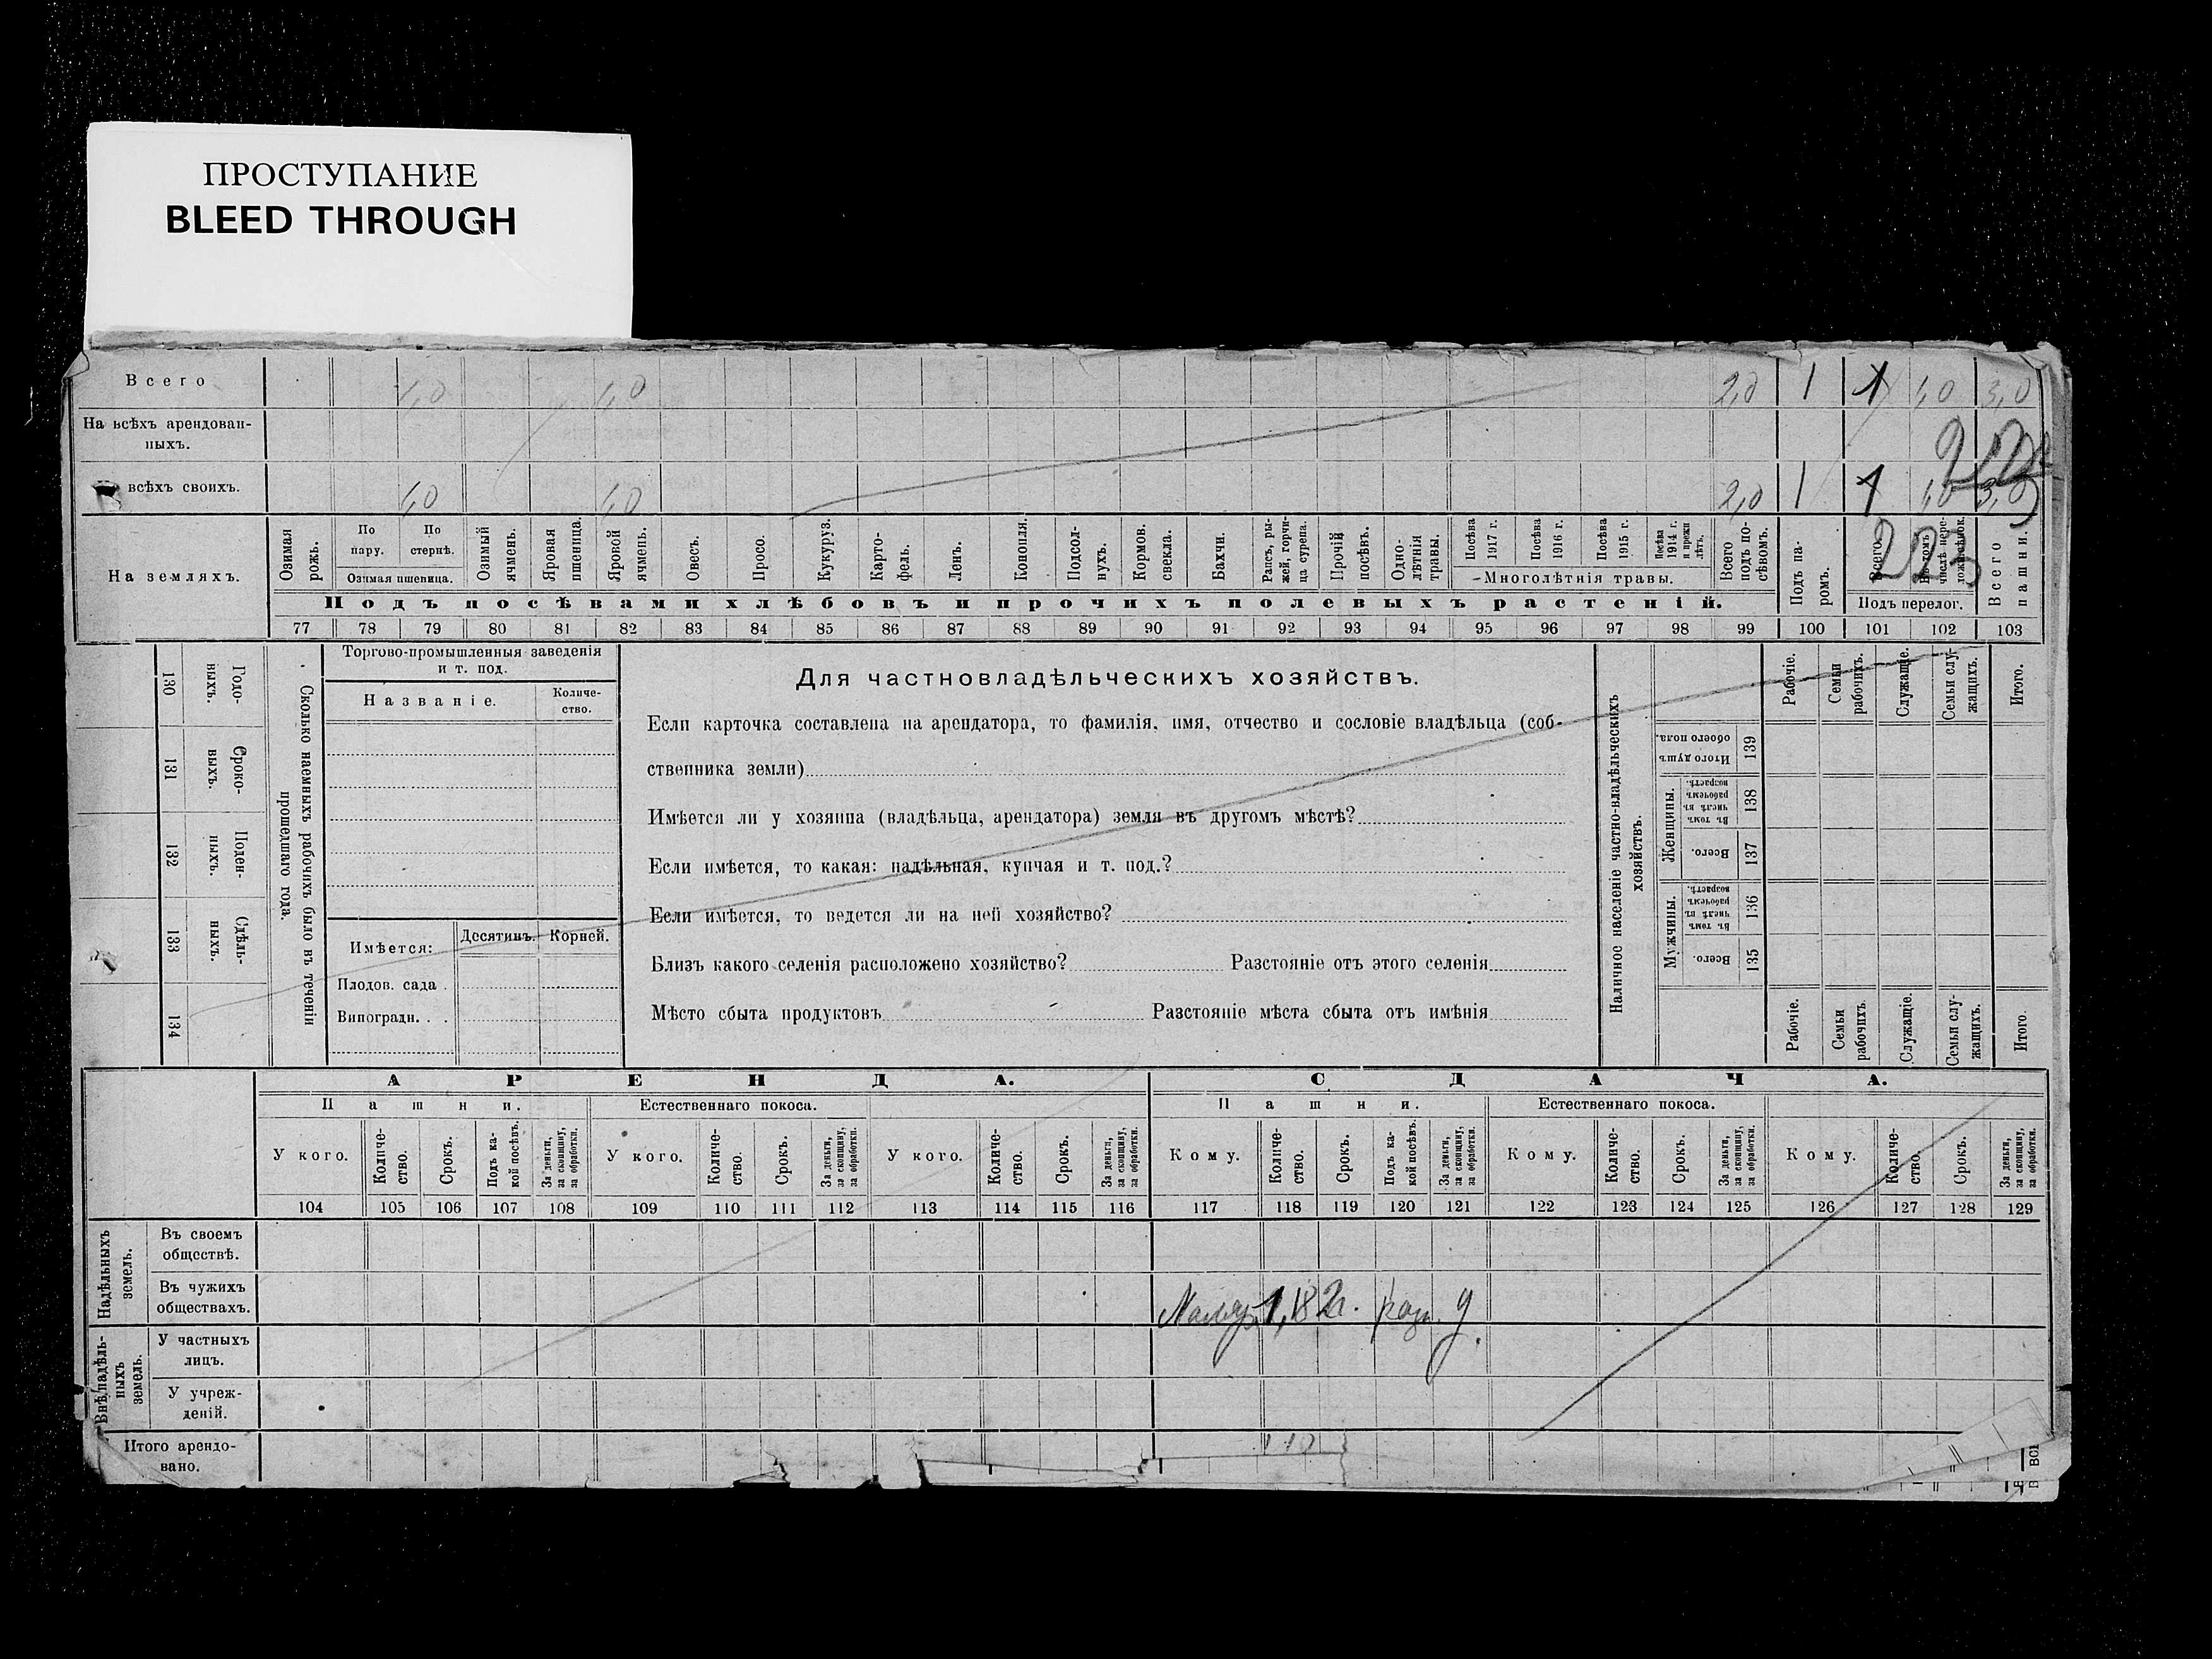 ПРОСТУПАНИЕ
BLEED THROUGH
Всего 1,0 1,0 2,0 1 1 1,0 3,0
На всѣхъ арендован-
ныхъ.
всѣхъ своихъ. 1,0 1,0 2,0 1 1 1,0 3,0
223
На земляхъ.
Озимая рожь.
По пару.
По стернѣ.
Озимая пшеница.
Озимый ячмень.
Яровая пшеница.
Яровой ячмень.
Овесъ.
Просо.
Кукуруз.
Карто-
фель.
Ленъ.
Конопля.
Подсол-
нухъ.
Кормов. свекла.
Бахчи.
Рапсъ, ры-
жей, горчи-
ца сурепа.
Прочій посѣвъ.
Одно-
лѣтнія травы.
Посѣва 1917 г.
Посѣва 1916 г.
Посѣва 1915 г.
Посѣва 1914 г. и прежн лѣтъ.
Многолѣтнія травы.
Всего подъ по-
сѣвомъ.
Подъ па-
ромъ.
Всего.
Въ томъ числѣ пере-
Подъ перелог.
Всего пашни.
Подъ посѣвами хлѣбовъ и прочихъ полевыхъ растеній.
77 78 79 80 81 82 83 84 85 86 87 88 89 90 91 92 93 94 95 96 97 98 99 100 101 102 103
130 Годо-
ныхъ.
131 Сроко-
выхъ.
132 Поден-
ныхъ.
133 Сдѣль-
ныхъ.
134
Сколько наемныхъ рабочихъ было въ теченіи
прошедшаго года.
Торгово-промышленныя заведенія
и т. под.
Названіе.
Количе-
ство.
Имѣется: Десятинъ. Корней.
Плодов. сада .
Виноградн. . .
Для частновладѣльческихъ хозяйствъ.
Если карточка составлена на арендатора, то фамилія, имя, отчество и сословіе владѣльца (соб-
ственника земли)
Имѣется ли у хозяина (владѣльца, арендатора) земля въ другомъ мѣстѣ?
Если имѣется, то какая: надѣльная, купчая и т. под.?
Если имѣется, то ведется ли на ней хозяйство?
Близъ какого селенія расположено хозяйство? Разстояніе отъ этого селенія
Мѣсто сбыта продуктовъ Разстояніе мѣста сбыта отъ имѣнія
Наличное населеніе частно-владѣльческихъ
хозяйствъ.
Рабочіе.
Семьи рабочихъ.
Служащіе.
Семьи слу-
жащихъ.
Итого.
Итого душъ обоего пола. 139
Женщины.
Въ томъ числѣ въ рабочемъ возрастѣ. 138
Всего. 137
Мужчины.
Въ томъ числѣ въ рабочемъ возрастѣ. 136
Всего. 135
Рабочіе.
Семьи рабочихъ.
Служащіе.
Семьи слу-
жащихъ.
Итого.
АРЕНДА. СДАЧА.
Пашни. Естественнаго покоса. Пашни. Естественнаго покоса.
У кого. Количе-
ство. Срокъ. Подъ ка-
кой посѣвъ. За деньги, за скопщину, за обработки. У кого. Количе-
ство. Срокъ. За деньги, за скопщину, за обработки. У кого. Количе-
ство. Срокъ. За деньги, за скопщину, за обработки. Кому. Количе-
ство. Срокъ. Подъ ка-
кой посѣвъ. За деньги, за скопщину, за обработки. Кому. Количе-
ство. Срокъ. За деньги, за скопщину, за обработки. Кому. Количе-
ство. Срокъ. За деньги, за скопщину, за обработки.
104 105 106 107 108 109 110 111 112 113 114 115 116 117 118 119 120 121 122 123 124 125 126 127 128 129
Надѣльныхъ земель.
Въ своемъ
обществѣ.
Въ чужихъ
обществахъ.
Внѣнадѣль-
ныхъ земель.
У частныхъ
лицъ.
У учреж-
деній.
Итого арендо-
вано.